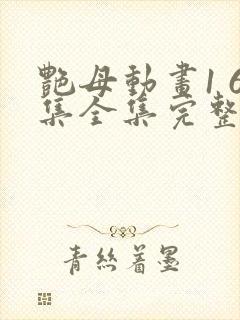 艷母動畫1 6
集全集完整
青絲着墨